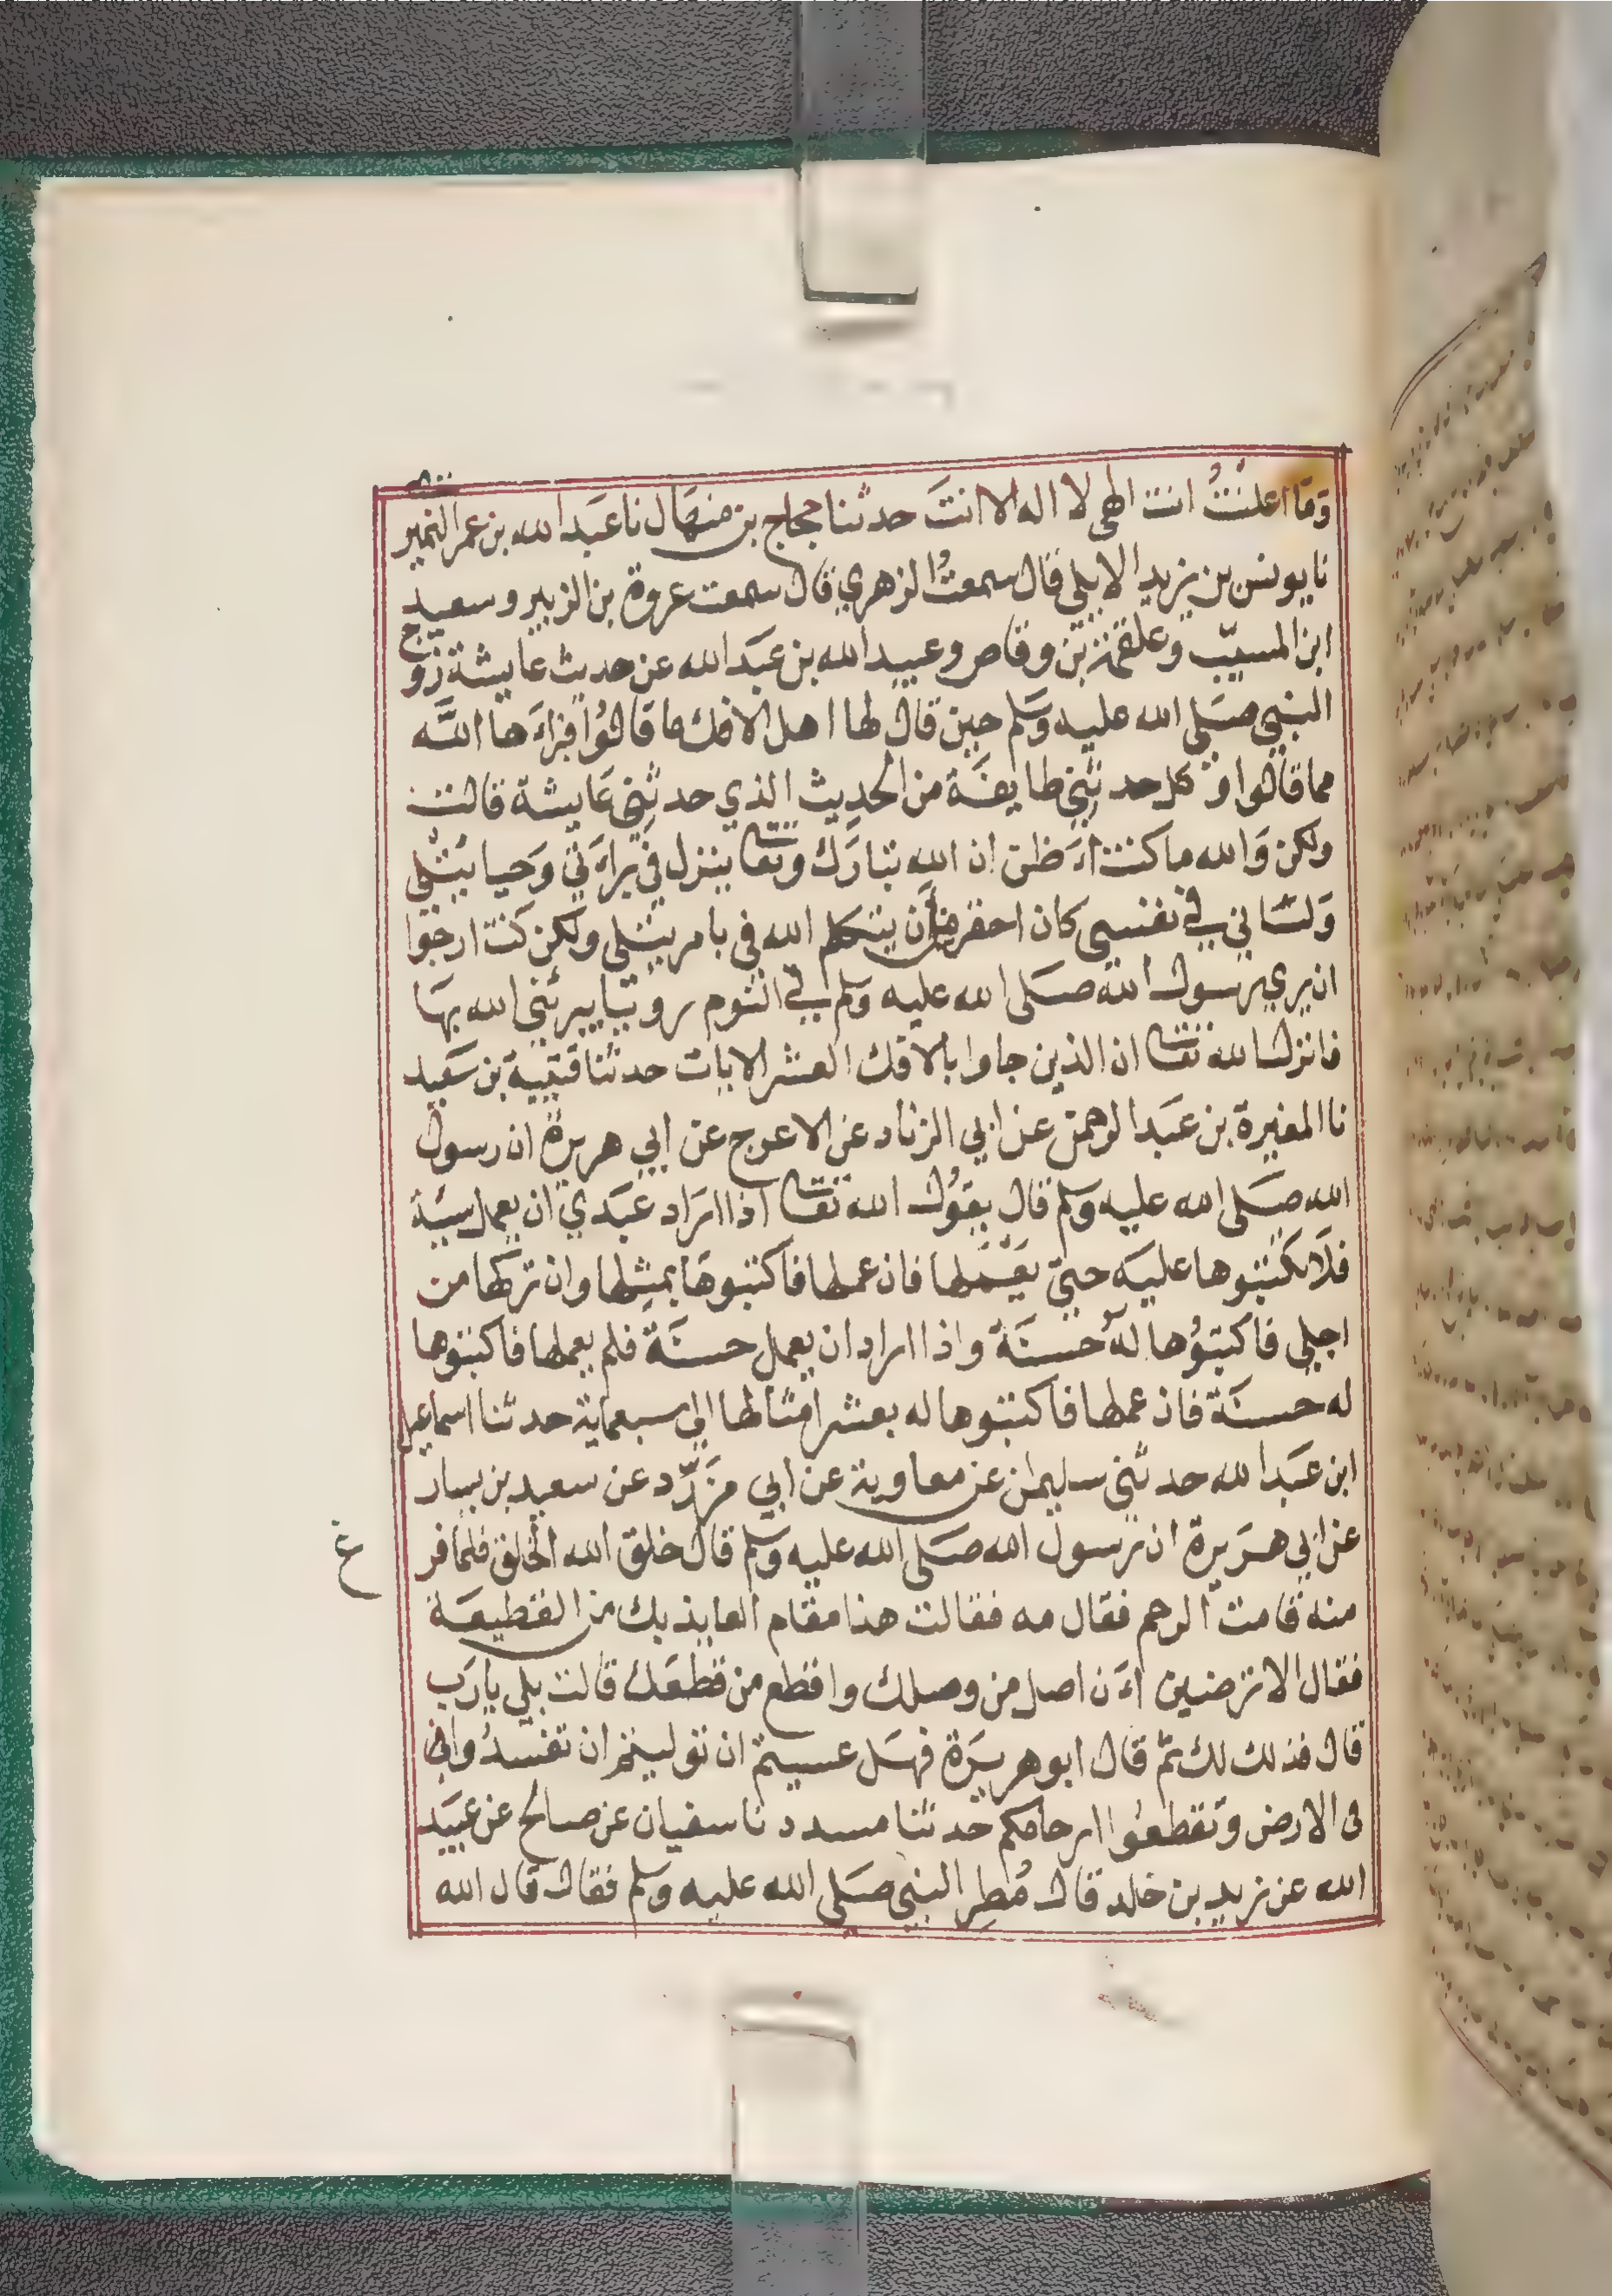 وَمَا اعلنْتُ انت الهى لا اله الا انتَ حدثنا حجاج بن منهَال نا عَبد الله بن عمر النميرِ
نا يونس بن يزيد الايلي قال سمعتُ الزهري قال سمعت عروة بن الزبير وسعيد
ابن المسيّب وعلقمة بن وقاص وعبيد الله بن عبَد الله عن حديث عايشة زوج
النبي صَلى الله عليه وسَلم حين قال لها اهل الافك ما قالوُا فبراءَها اللّه
مما قالوا وَ كل حدثني طايفَة من الحديث الذي حدثني عَايشة قالت
ولكن وَالله ما كنت اءَظن ان الله تبارَك وتعَا ينزل في براءَتي وَحيا يتلي
وَلشاني في نفسي كان احقر من أن يتكلم الله في بامر يتلي ولكن كنت ارجوا
ان يري رسول الله صَلى الله عليه وَسلم في النوم رويَا يبرئني الله بهَا
فانزل الله تعَا ان الذين جاوا بالافك العشر الايات حدثنا قتيبة بن سَعيد
نا المغيرة بن عَبد الرحمن عن ابي الزناد عن الاعرج عن ابي هريرة ان رسول
الله صَلى الله عليه وسَلم قال يقوُل الله تعَا اذا ارَاد عبَدي ان يعمل سيئة
فلَا تكتبوها عليَه حتي يعَمَلها فان عملها فاكتبوهَا بمثلها وان تركهَا من
اجلي فاكتبوُها لهُ حسنَة واذا اراد ان يعمل حسنَة فلم يعملها فاكتبوها
له حسنَة فان عملها فاكتبوها له بعشر امثالها الي سبعماية حدثنا اسماعيل
ابن عَبد الله حدثني سليمن عن معاوية عن ابي مزَرّد عن سعيد بن يسار
عن ابي هرَيرة ان رسول الله صَلى الله عليه وسَلم قال خلق الله الخلق فلما فر
غ
منه قامت الرحم فقال مه فقالت هذا مقام العايذ بك من القطيعَة
فقال الا ترضين اءَن اصل من وصلك واقطع من قطعَك قالت بلي يا رَب
قال فذلك لك ثمّ قال ابو هريرَة فهَل عسيتم ان توليتم ان تفسدُوا في
في الارض وَتقطعوُا ارحامكم حدثنا مسدد نا سفيان عن صالح عن عبيَد
الله عن زيد بن خالد قال مُطِر النبي صَلى الله عليه وسَلم فقال قال الله